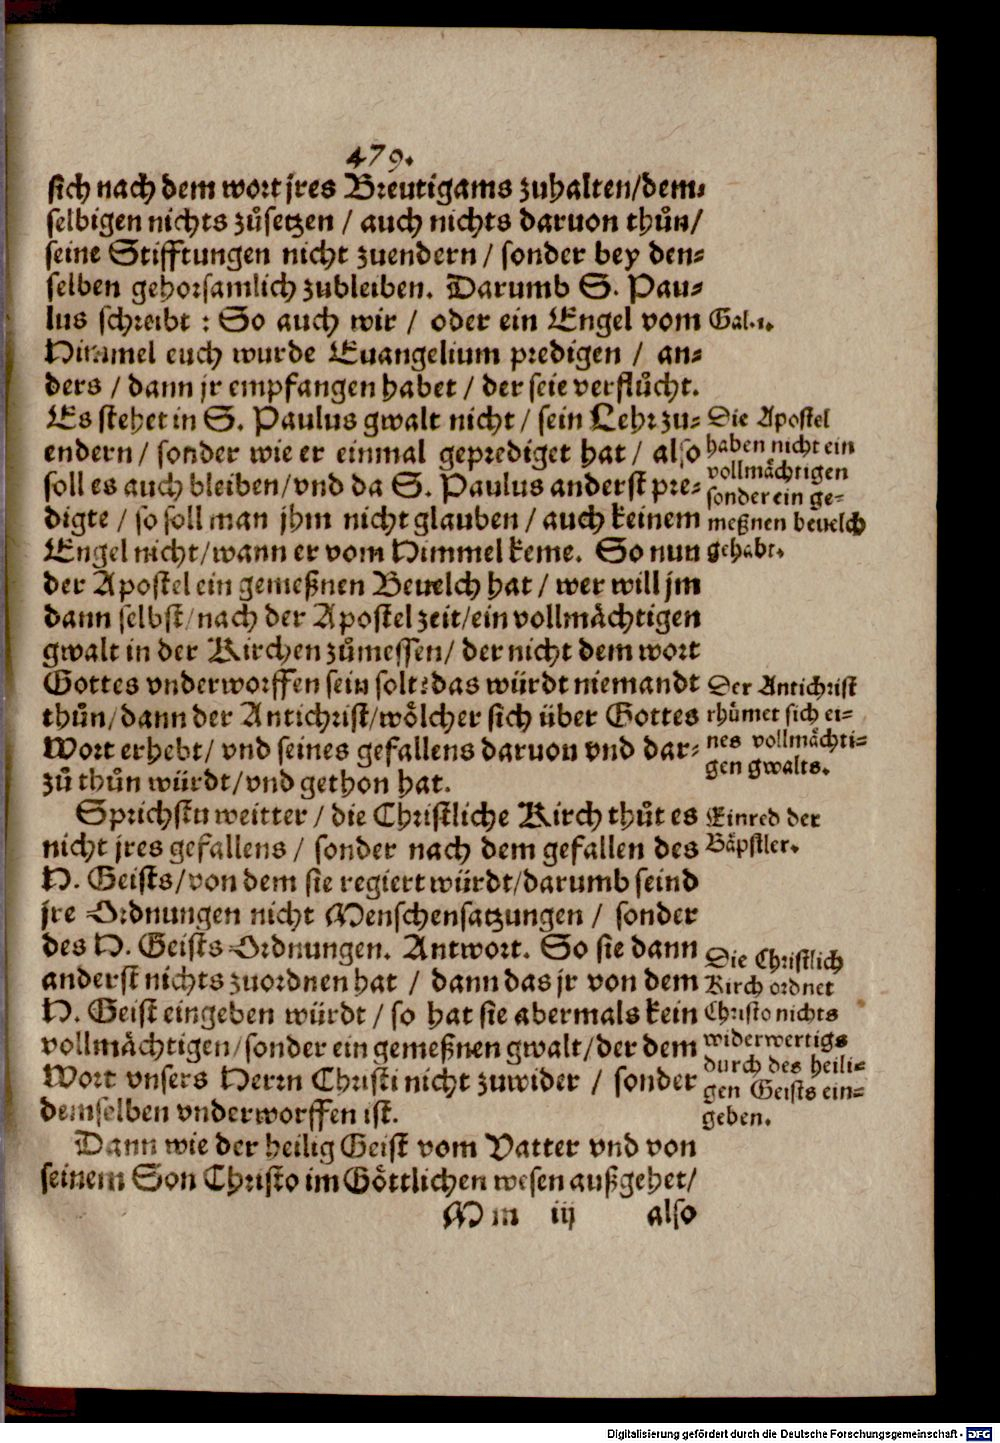 479.
sich nach dem wort jres Breutigams zuhalten/dem-
selbigen nichts zůsetzen / auch nichts daruon thůn/
seine Stifftungen nicht zuendern / sonder bey den-
selben gehorsamlich zubleiben. Darumb S. Pau-
lus schreibt : So auch wir / oder ein Engel vom
Himmel euch wurde Euangelium predigen / an-
ders / dann jr empfangen habet / der seie verflůcht.
Es stehet in S. Paulus gwalt nicht / sein Lehr zu-
endern / sonder wie er einmal geprediget hat / also
soll es auch bleiben/vnd da S. Paulus anderst pre-
digte / so soll man jhm nicht glauben / auch keinem
Engel nicht/wann er vom Himmel keme. So nun
der Apostel ein gemeßnen Beuelch hat / wer will jm
dann selbst/nach der Apostel zeit/ein vollmächtigen
gwalt in der Kirchen zůmessen/ der nicht dem wort
Gottes vnderworffen sein solt? das würdt niemandt
thůn/dann der Antichrist/wölcher sich über Gottes
Wort erhebt/ vnd seines gefallens daruon vnd dar-
zů thůn würdt/vnd gethon hat.
Sprichstu weitter / die Christliche Kirch thůt es
nicht jres gefallens / sonder nach dem gefallen des
H. Geists/von dem sie regiert würdt/darumb seind
jre Ordnungen nicht Menschensatzungen / sonder
des H. Geists Ordnungen. Antwort. So sie dann
anderst nichts zuordnen hat / dann das jr von dem
H. Geist eingeben würdt / so hat sie abermals kein
vollmächtigen/sonder ein gemeßnen gwalt/der dem
Wort vnsers Herrn Christi nicht zuwider / sonder
demselben vnderworffen ist.
Dann wie der heilig Geist vom Vatter vnd von
seinem Son Christo im Göttlichen wesen außgehet/
Mm iij also
Gal.1.
Die Apostel
haben nicht ein
vollmächtigen
sonder ein ge-
meßnen beuelch
gehabt.
Der Antichrist
rhůmet sich ei-
nes vollmächti-
gen gwalts.
Einred der
Bäpstler.
Die Christlich
Kirch ordnet
Christo nichts
widerwertigs
durch des heili-
gen Geists ein-
geben.
Digitalisierung gefördert durch die Deutsche Forschungsgemeinschaft - DFG